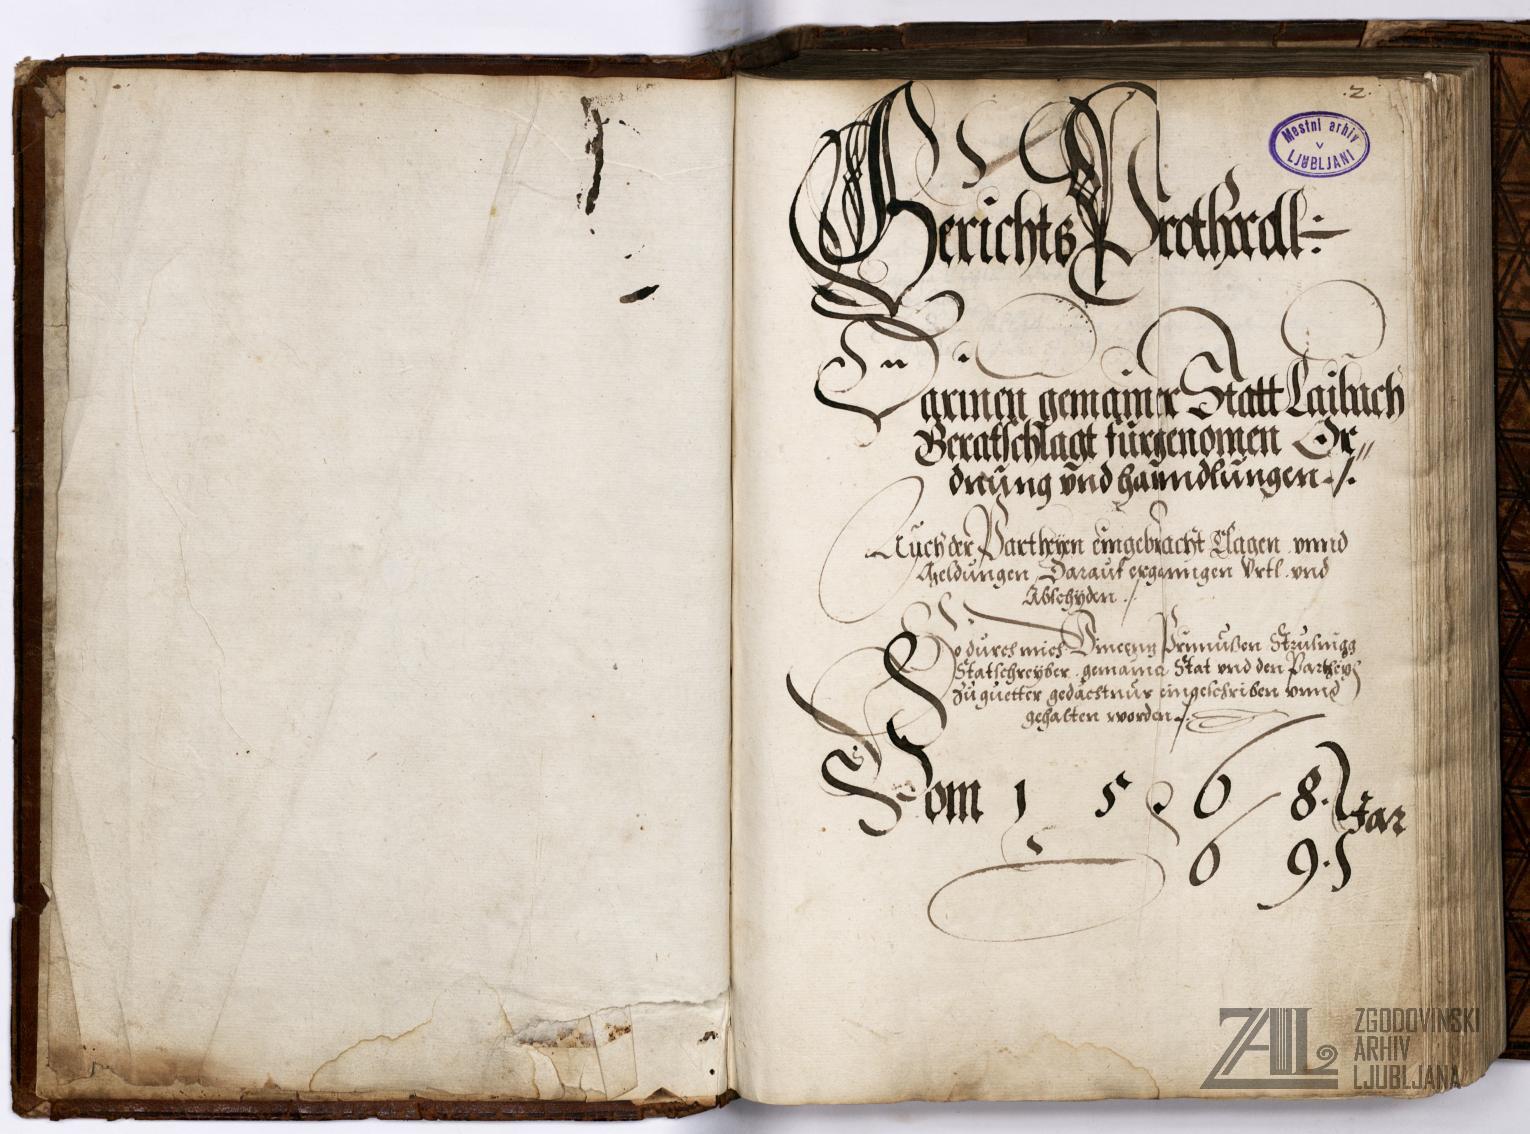 .2.
Mestni arhiv
v
LJUBLJANI
Gerichts Prothocoll :
Darinen gemainer Statt Laibach
Beratschlagt fürgenomen Or„
dnung vnd hanndlungen ./.
Auch der Partheyen eingebracht Clagen vnnd
Meldungen, Darauf ergangen Vrtl vnd
Abschyden ./.
So durch mich Vincentz Primussen Strulnigg
Statschreyber gemainer Stat vnd den Partheyen
zu guetter gedächtnus eingeschriben vnnd
gehalten worden ./.
Vom 1 5 6 8. Jar
6 9.
ZAL ZGODOVINSKI
ARHIV
LJUBLJANA